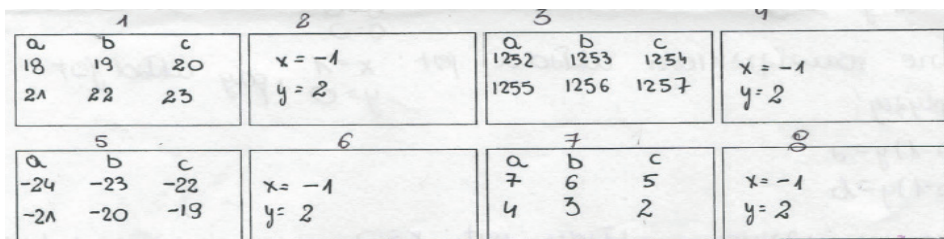 1 2 3 4
a b c
18 19 20
21 22 23
x = -1
y = 2
a b c
1252 1253 1254
1255 1256 1257
x = -1
y = 2
5 6 7 8
a b c
-24 -23 -22
-21 -20 -19
x = -1
y = 2
a b c
7 6 5
4 3 2
x = -1
y = 2